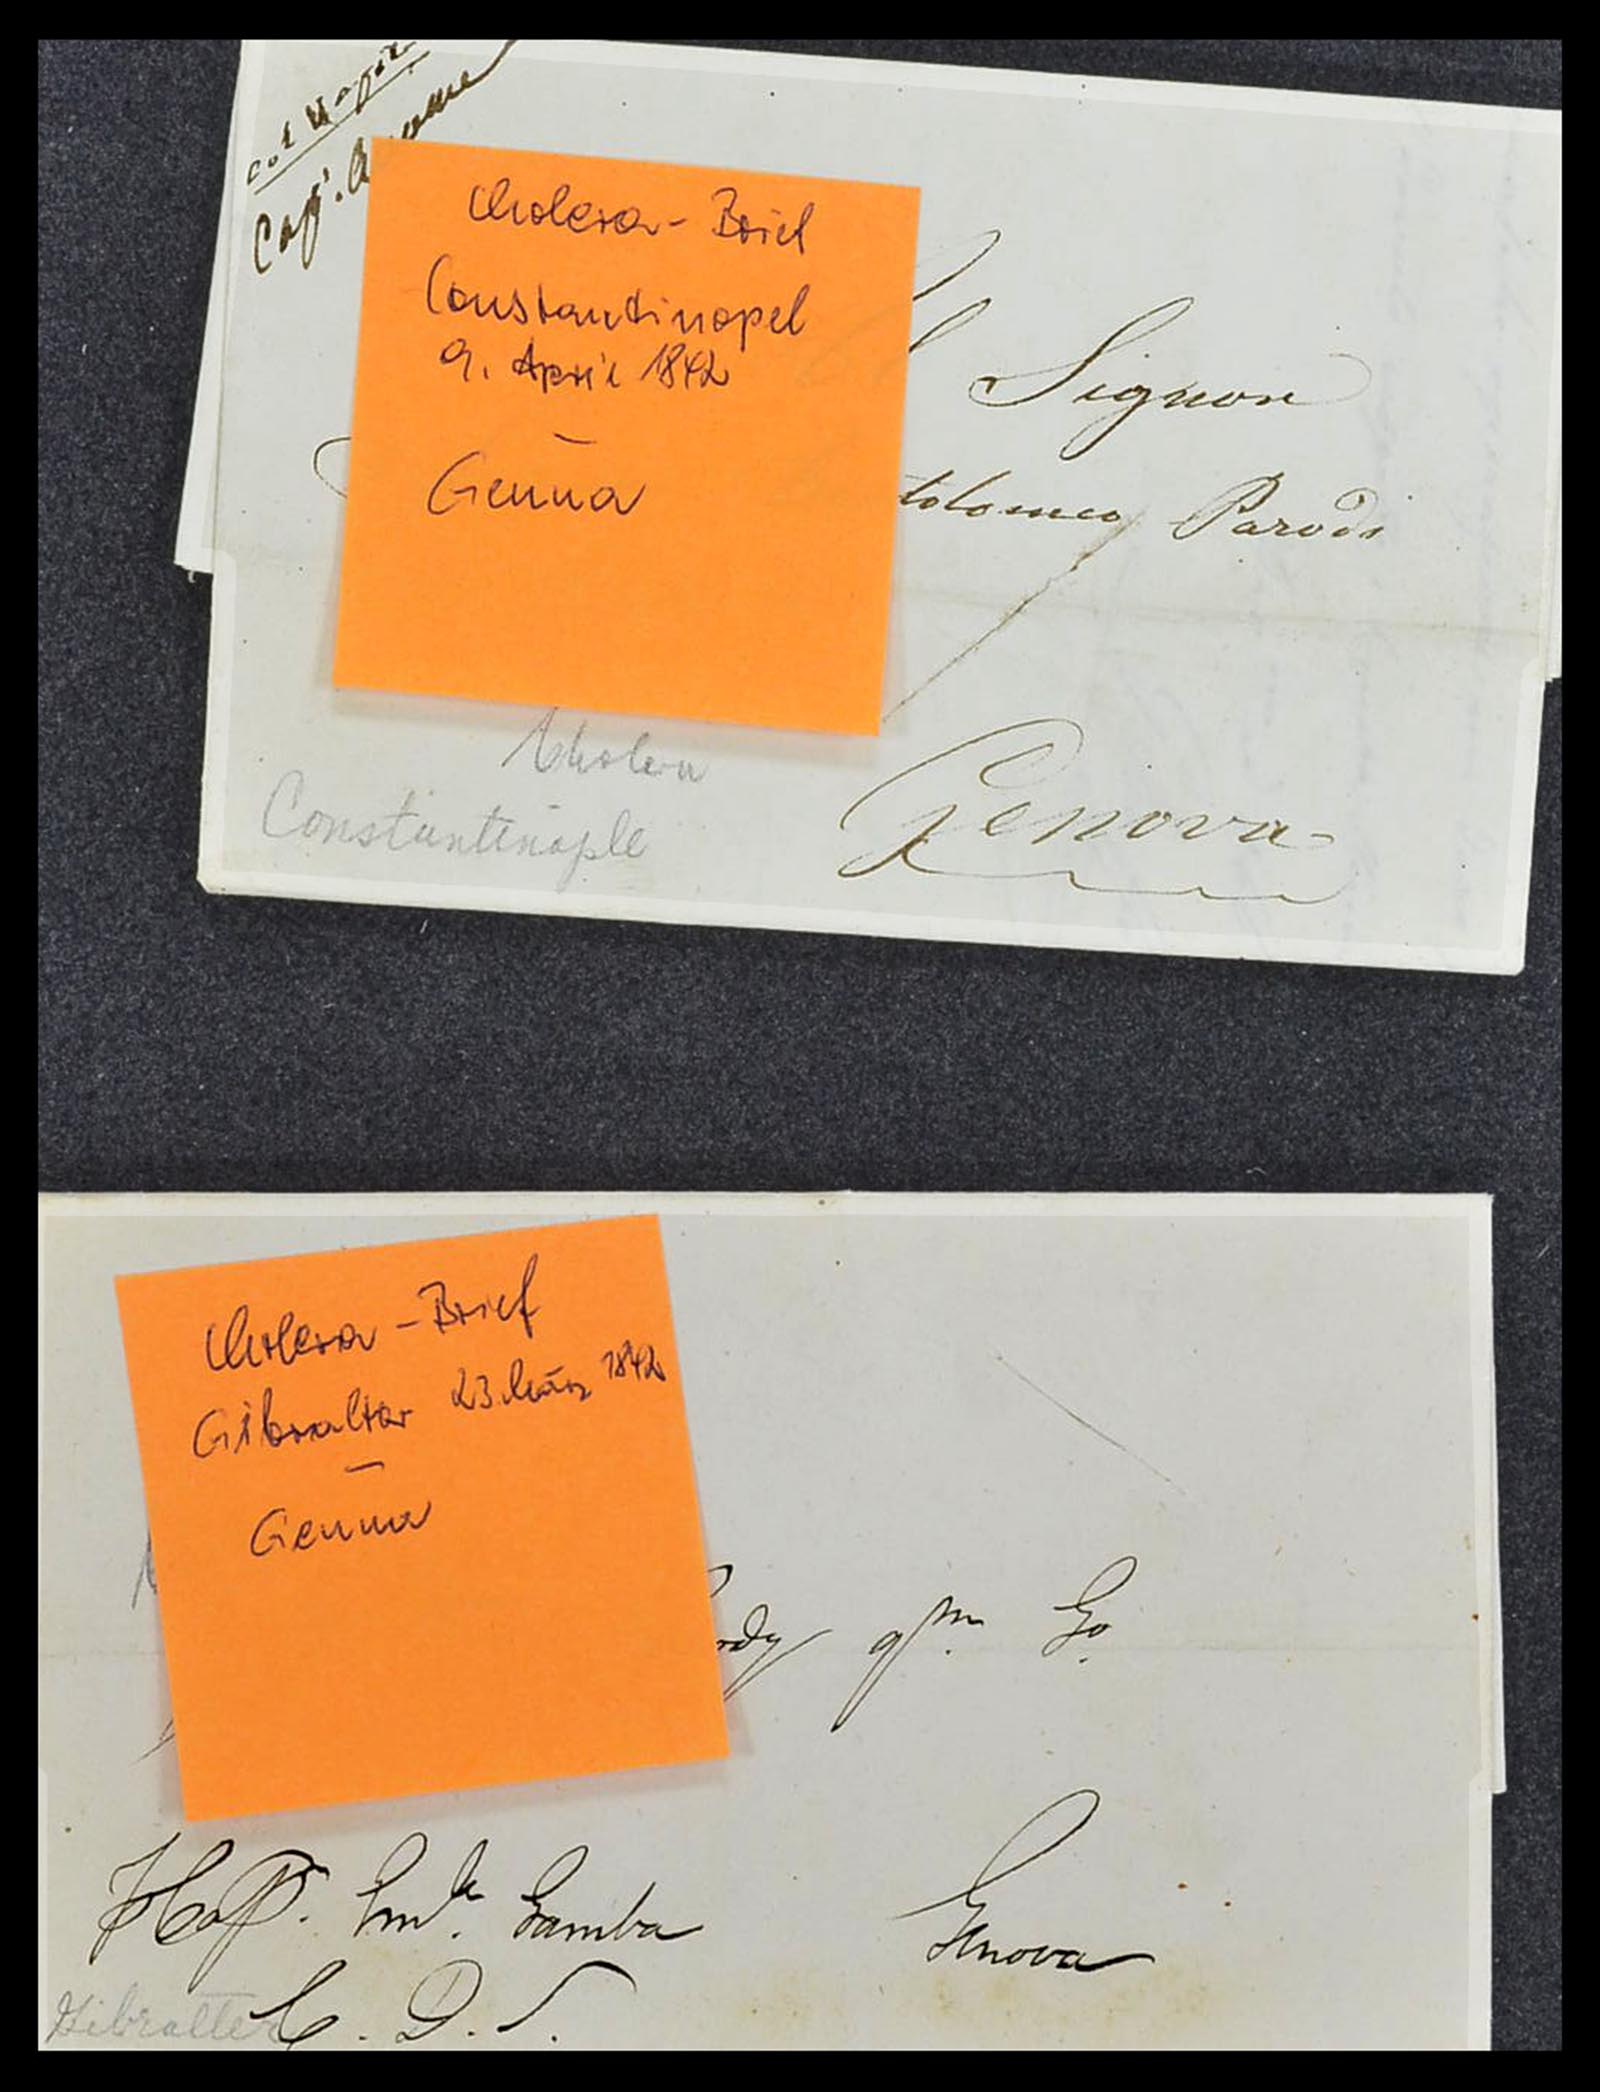 Cholera-Brief
Constantinopel
9. April 1842
–
Genua
Signor
tolomeo Parodi
Cholera
Constantinople
Genova
Cholera-Brief
Gibraltar 23. März 1842
–
Genua
qm. Go.
Gamba
Genova
Gibralter
C. D. S.